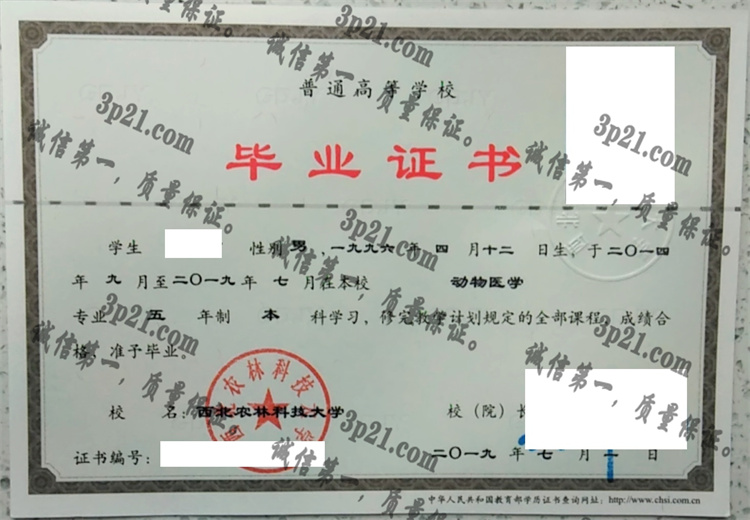 普通高等学校
毕业证书
学生 性别 男，一九九六年 四 月十二 日生，于二〇一四
年 九 月至二〇一九年 七 月在本校 动物医学
专业 五 年制 本 科学习，修完教学计划规定的全部课程，成绩合
格，准予毕业。
校 名：西北农林科技大学 校（院）长
证书编号： 二〇一九 年 七 月 日
中华人民共和国教育部学历证书查询网址：http://www.chsi.com.cn
3p21.com
诚信第一，质量保证。
3p21.com
诚信第一，质量保证。
3p21.com
诚信第一，质量保证。
3p21.com
诚信第一，质量保证。
3p21.com
诚信第一，质量保证。
3p21.com
诚信第一，质量保证。
3p21.com
诚信第一，质量保证。